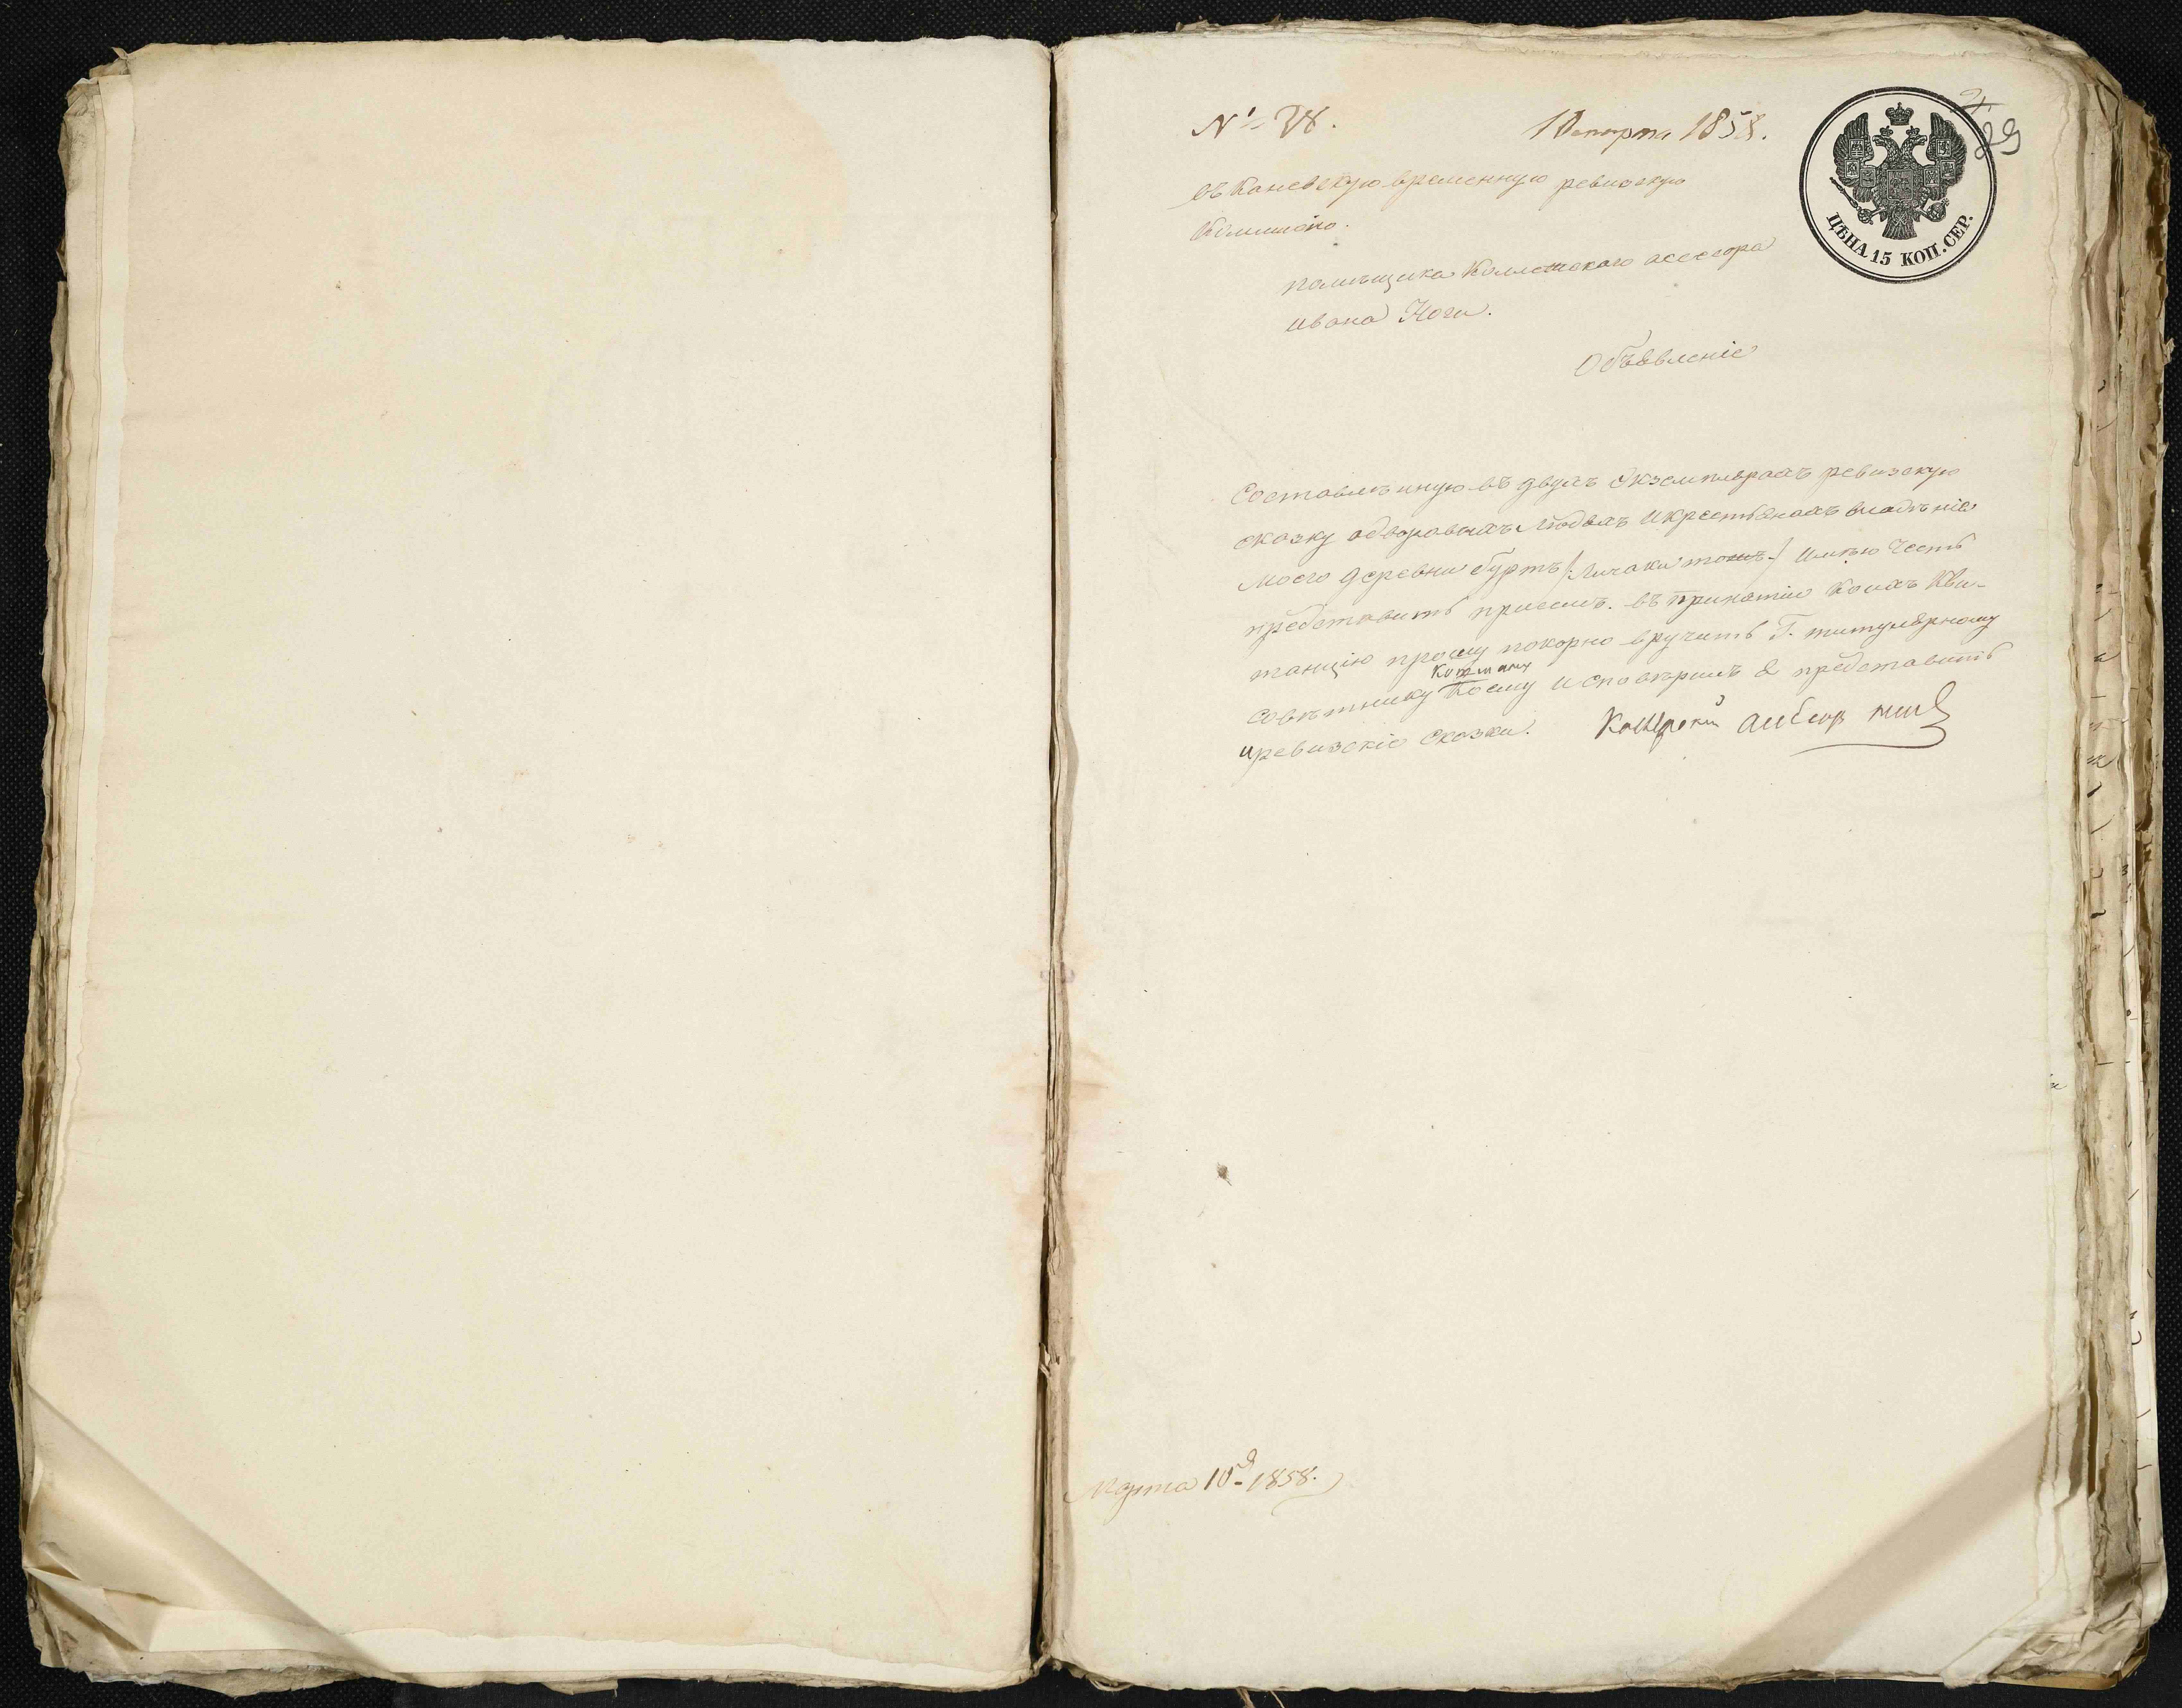 № 38.
10 марта 1858.
29
ЦѢНА 15 КОП. СЕР.
въ Каневскую временную ревизскую
Комисію.
помѣщика Коллежскаго асессора
ивана Ноги.
Объявленіе
Составлѣнную въ двухъ Экземплярахъ ревизскую
сказку одворовыхъ Людяхъ икрестьянахъ владѣнія
моего деревни буртъ /: Личаки тожъ :/ имѣю честь
представить присемъ. въ принятіи коихъ Кви-
танцію прошу покорно вручить Г. титулярному
совѣтнику коему
и ревизскіе сказки.
Марта 10 д. 1858.